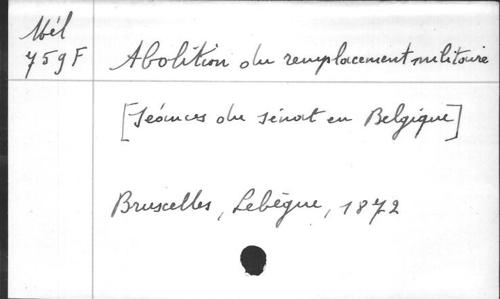 Mél
759 F
Abolition du remplacement militaire
[Séances du sénat en Belgique]
Bruxelles, Lebègue, 1872